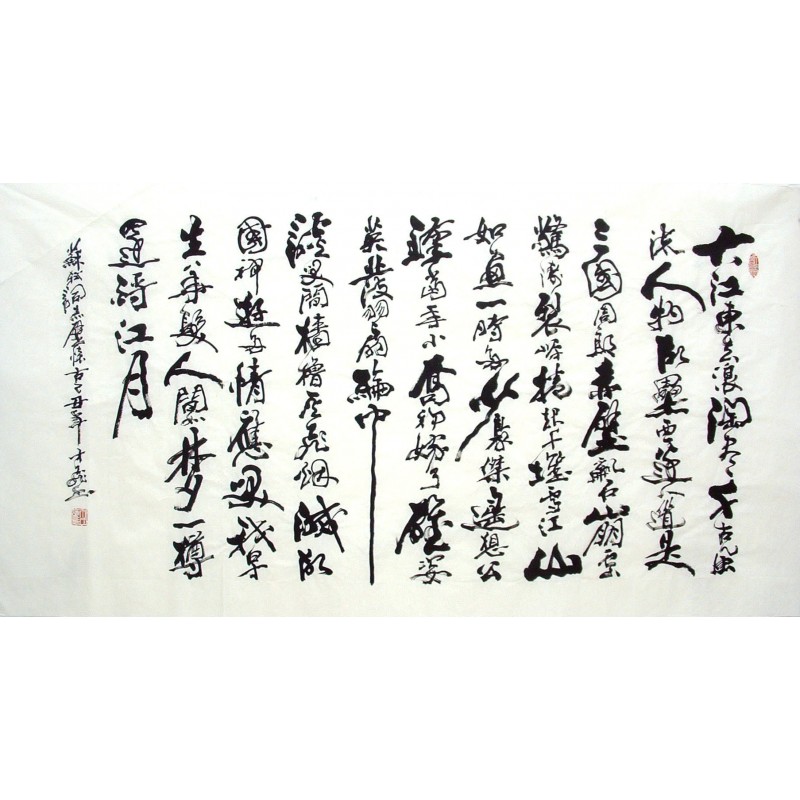 大江東去浪淘盡千古風
流人物故壘西邊人道是
三國周郎赤壁亂石崩雲
驚濤裂岸捲起千堆雪江山
如畫一時多少豪傑遙想公
瑾當年小喬初嫁了雄姿
英發羽扇綸巾
談笑間檣櫓灰飛煙滅故
國神遊多情應笑我早
生華髮人間如夢一樽
還酹江月
蘇軾詞赤壁懷古己丑年